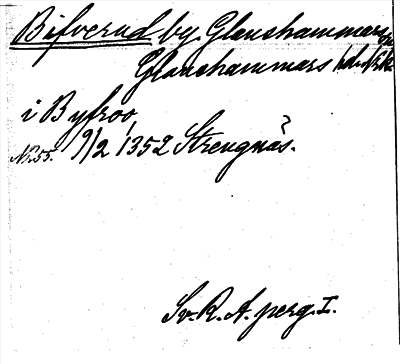 Bifverud by. Glanshammars sn
Glanshammars hd. Nrk.
i Byfroo,
?
Nr. 55. 9/2 1352 Strengnäs.
Sv. R. A. perg. I.